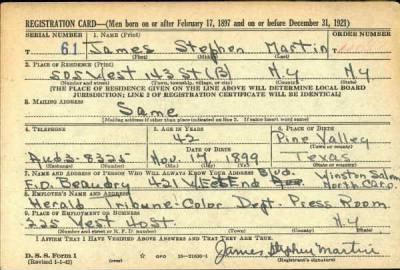 REGISTRATION CARD—(Men born on or after February 17, 1897 and on or before December 31, 1921)
SERIAL NUMBER 1. NAME (Print) ORDER NUMBER
T 61 James Stephen Martin
(First) (Middle) (Last)
2. PLACE OF RESIDENCE (Print)
505 West 143 St (B) N.Y N.Y
(Number and street) (Town, township, village, or city) (County) (State)
[THE PLACE OF RESIDENCE GIVEN ON THE LINE ABOVE WILL DETERMINE LOCAL BOARD
JURISDICTION; LINE 2 OF REGISTRATION CERTIFICATE WILL BE IDENTICAL]
3. MAILING ADDRESS
Same
[Mailing address if other than place indicated on line 2. If same insert word same]
4. TELEPHONE 5. AGE IN YEARS 6. PLACE OF BIRTH
42 Pine Valley
DATE OF BIRTH (Town or county)
Aud 3-8325 Nov. 17 1899 Texas
(Exchange) (Number) (Mo.) (Day) (Yr.) (State or country)
7. NAME AND ADDRESS OF PERSON WHO WILL ALWAYS KNOW YOUR ADDRESS Blvd. Winston Salem
F.D. Beaudry 421 West End Ave. North Caro.
8. EMPLOYER'S NAME AND ADDRESS
Herald Tribune-Color Dept-Press Room
9. PLACE OF EMPLOYMENT OR BUSINESS
225 West St. N.Y
(Number and street or R. F. D. number) (Town) (County) (State)
I AFFIRM THAT I HAVE VERIFIED ABOVE ANSWERS AND THAT THEY ARE TRUE.
D. S. S. Form 1
(Revised 1-1-42) GPO 16—21630-1 James Stephen Martin
(Registrant's signature)